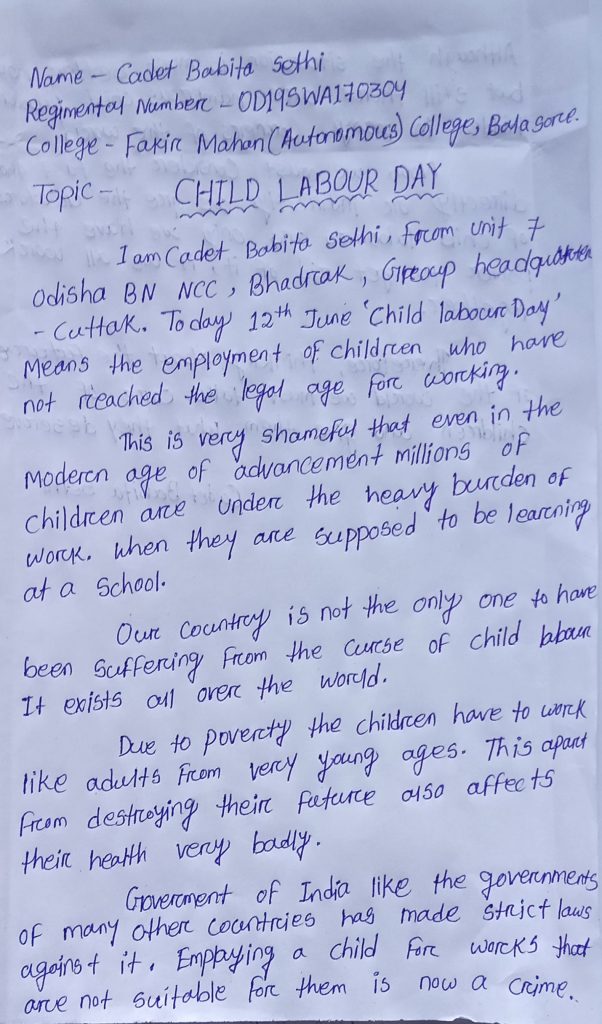 Name - Cadet Babita Sethi
Regimental Number - OD19SWA170304
College - Fakir Mohan (Autonomous) College, Balasore.
Topic - CHILD LABOUR DAY
I am Cadet Babita Sethi, from unit 7
Odisha BN NCC, Bhadrak, Group headquarter
- Cuttak. Today 12th June 'Child labour Day'
Means the employment of children who have
not reached the legal age for working.
This is very shameful that even in the
Modern age of advancement millions of
children are under the heavy burden of
work. when they are supposed to be learning
at a School.
Our Country is not the only one to have
been suffering from the curse of child labour
It exists all over the world.
Due to poverty the children have to work
like adults from very young ages. This apart
from destroying their future also affects
their health very badly.
Goverment of India like the governments
of many other countries has made strict laws
against it. Employing a child for works that
are not suitable for them is now a crime.